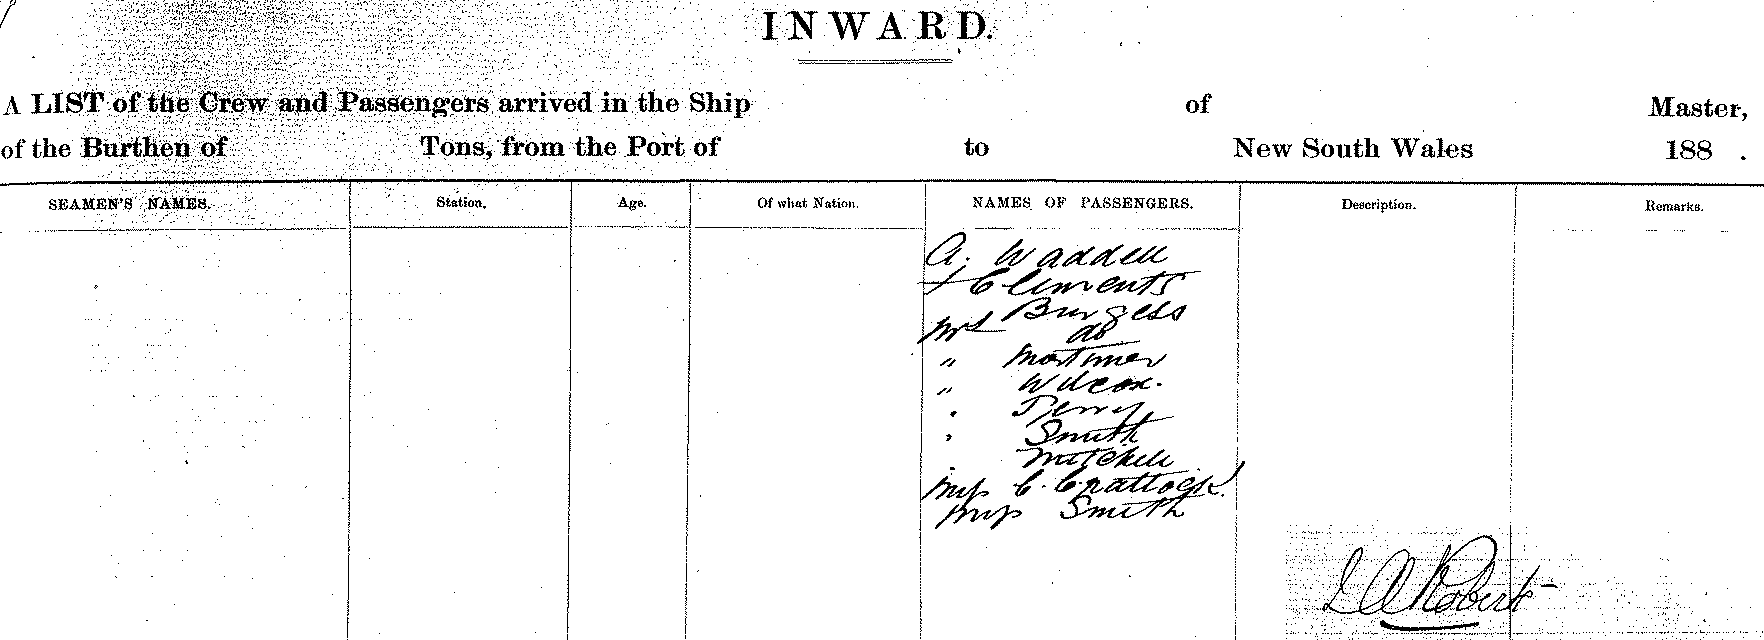 INWARD.
A LIST of the Crew and Passengers arrived in the Ship of Master,
of the Burthen of Tons, from the Port of to New South Wales 188 .
SEAMEN'S NAMES. Station. Age. Of what Nation. NAMES OF PASSENGERS. Description. Remarks.
A. Waddell
Clements
Burgess
Mrs do
" Mortimer
" Wilcox.
" Perry
" Smith
Mitchell
Miss C. Crattock
Miss Smith
Roberts